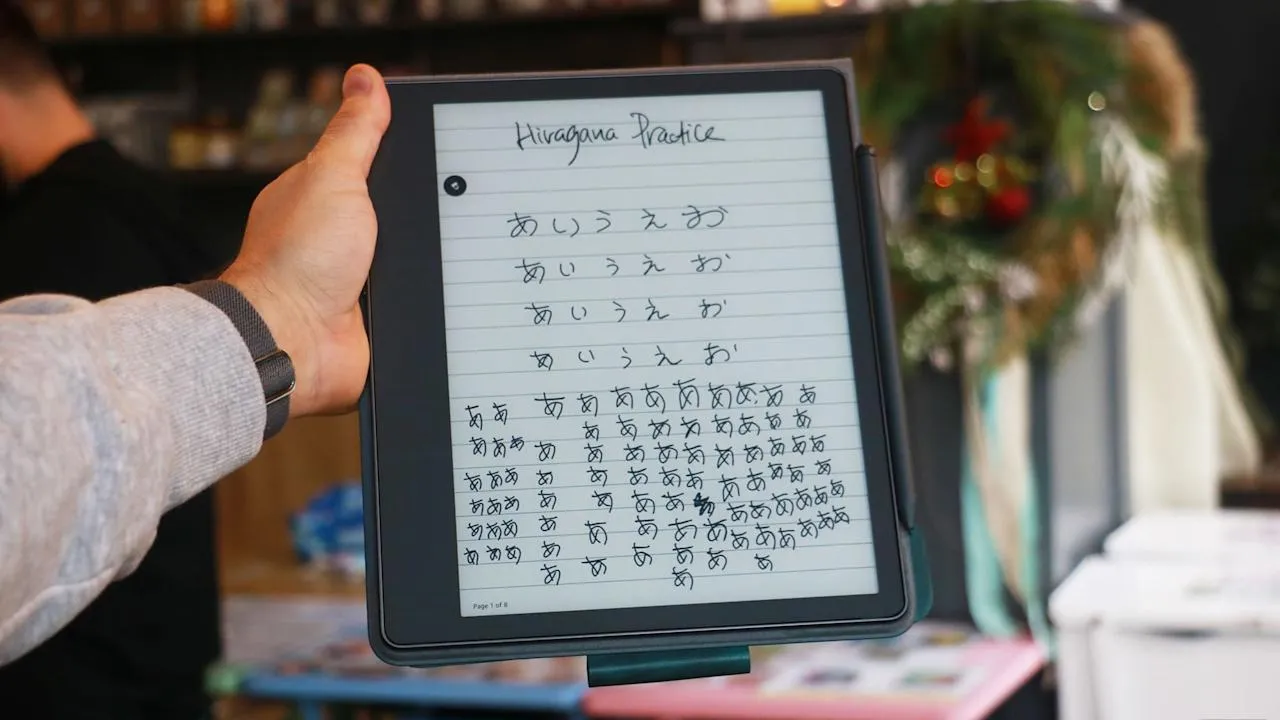 Hiragana Practice
あ い う え お
あ い う え お
あ い う え お
あ い う え お
あ あ あ あ あ あ あ あ あ あ あ
あ あ あ あ あ あ あ あ あ あ あ あ
あ あ あ あ あ あ あ あ あ あ あ あ あ
あ あ あ あ あ あ あ あ あ あ あ あ あ
あ あ あ あ あ あ あ あ あ あ あ あ あ
あ あ あ あ あ あ あ あ あ あ あ あ あ あ
あ あ あ あ あ あ
あ
Page 1 of 8